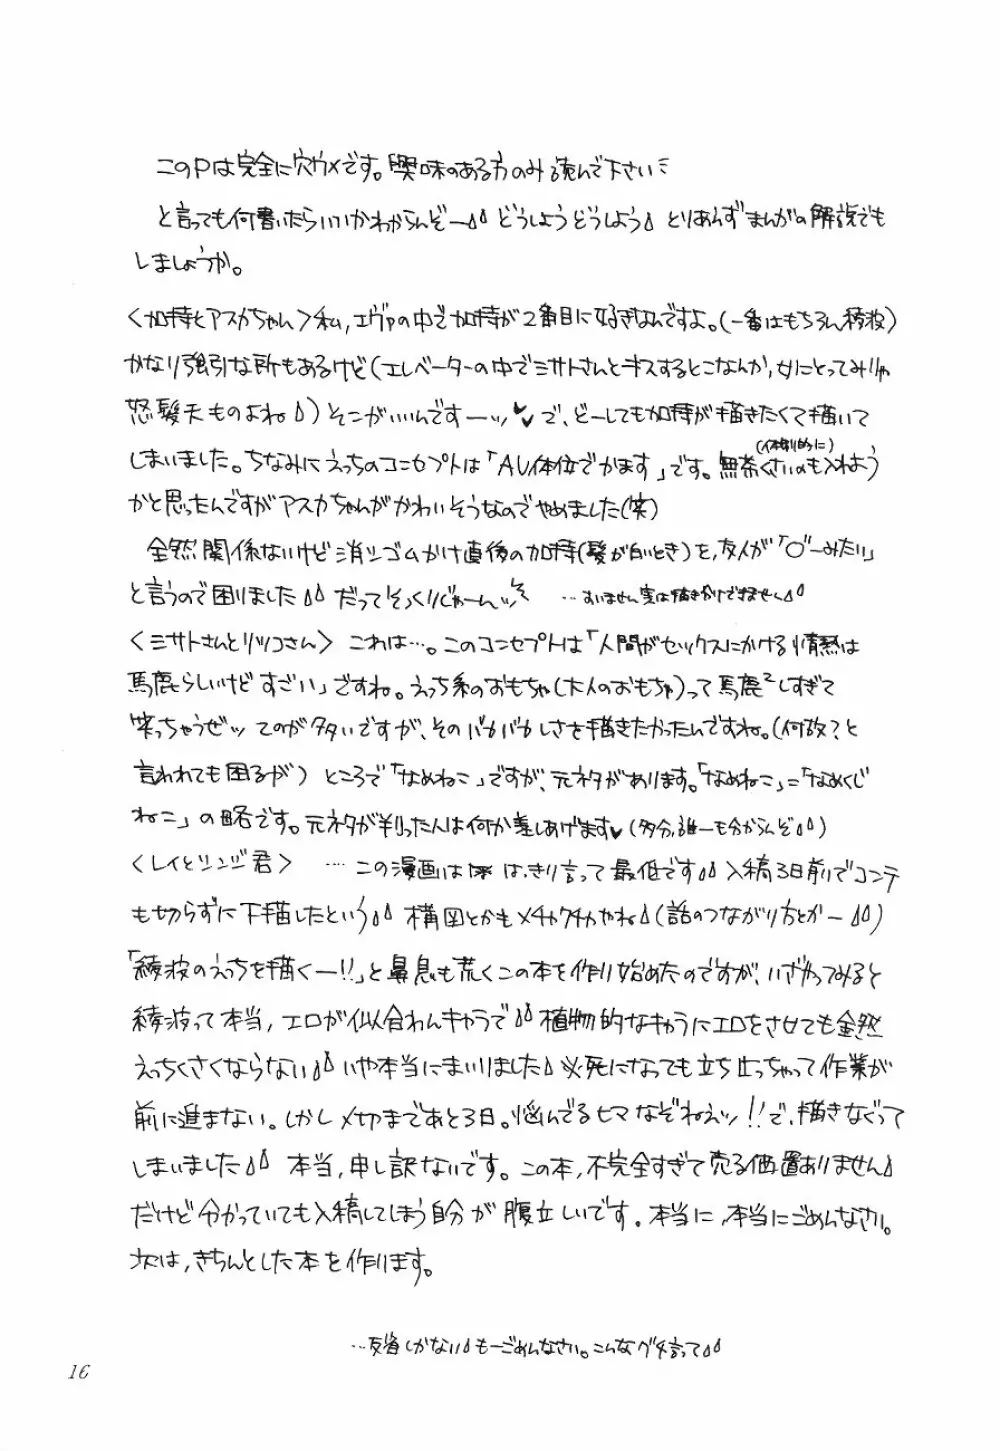 このPは完全に穴ウメです。興味のある方のみ読んで下さいミ
と言っても何書いたらいいかわからんぞー どうしようどうしよう とりあえずまんがの解説でも
しましょうか。
〈加持とアスカちゃん〉私,エヴァの中で加持が2番目に好きなんですよ。(一番はもちろん綾波)
かなり強引な所もあるけど(エレベーターの中でミサトさんとキスするとこなんか,女にとってみりゃ
怒髪天ものよね)そこがいいんですーッ♥で、どーしても加持が描きたくて描いて
(体制的に)
しまいました。ちなみにえっちのコンセプトは「AV体位でかます」です。無茶くさいのも入れよう
かと思ったんですがアスカちゃんがかわいそうなのでやめました(笑)
全然関係ないけど消しゴムかけ直後の加持(髪が白いとき)を,友人が「 ーみたい」
と言うので困りました だってそっくりじゃーんッ …すいません実は描きかけですません
〈ミサトさんとリツコさん〉 これは…。このコンセプトは「人間がセックスにかける情熱は
馬鹿らしいけどすごい」ですね。えっち系のおもちゃ(大人のおもちゃ)って馬鹿²しすぎて
笑っちゃうぜッ てのが多いですが、そのバカバカしさを描きたかったんですね。(何故?と
言われても困るが) ところで「なめねこ」ですが、元ネタがあります。「なめねこ」=「なめくじ
ねこ」の略です。元ネタが判った人は何か差しあげます♥(多分,誰一も分からんぞ)
〈レイとシンジ君〉 ‥‥この漫画は はっきり言って最低です 入稿3日前でコンテ
も切らずに下描したという 構図とかもメチャクチャやね(話のつながり方とかー)
「綾波のえっちを描くー!!」と鼻息も荒くこの本を作り始めたのですが、いざやってみると
綾波って本当,エロが似合わんキャラで 植物的なキャラにエロをさせても全然
えっちくさくならない いや本当にまいりました 必死になっても立ち止っちゃって作業が
前に進まない。しかし〆切まであと3日。悩んでるヒマなぞねえッ!!で,描きなぐって
しまいました 本当,申し訳ないです。この本,不完全すぎて売る価置ありません
だけど分かっていても入稿してしまう自分が腹立しいです。本当に、本当にごめんなさい。
次は,きちんとした本を作ります。
…反省しかない もーごめんなさい。こんなグチ言って
16